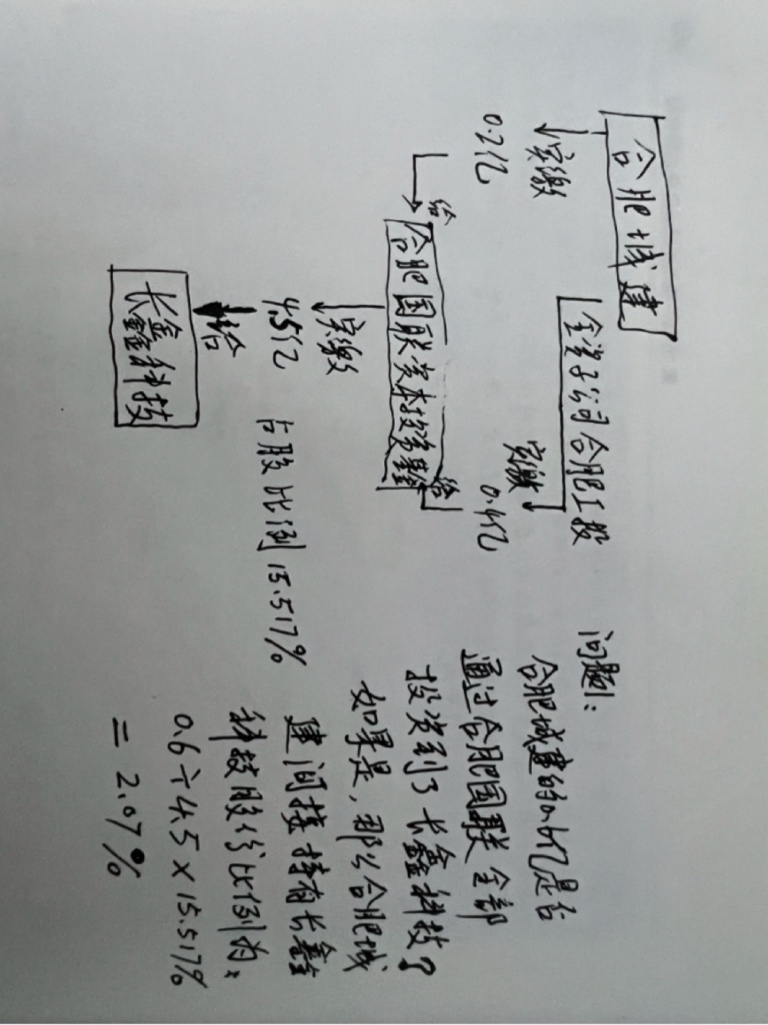 合肥城建
实缴
0.2亿
给
全资子公司合肥工投
实缴
0.4亿
给
合肥国联资本投资基金
实缴
4.5亿 占股比例15.517%
给
长鑫科技
问题1:
合肥城建的0.6亿是否
通过合肥国联全部
投资到了长鑫科技?
如果是,那么合肥城
建间接持有长鑫
科技股份比例为:
0.6÷4.5×15.517%
=2.07%